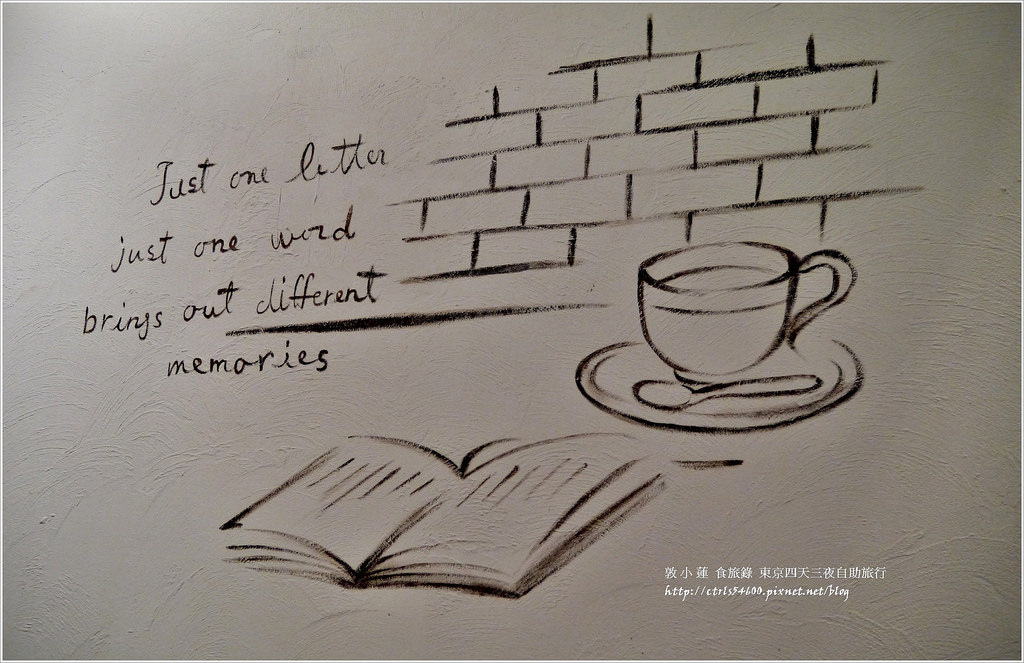 Just one letter
just one word
brings out different
memories
敦小蓮 食旅錄 東京四天三夜自助旅行
http://ctrls54600.pixnet.net/blog